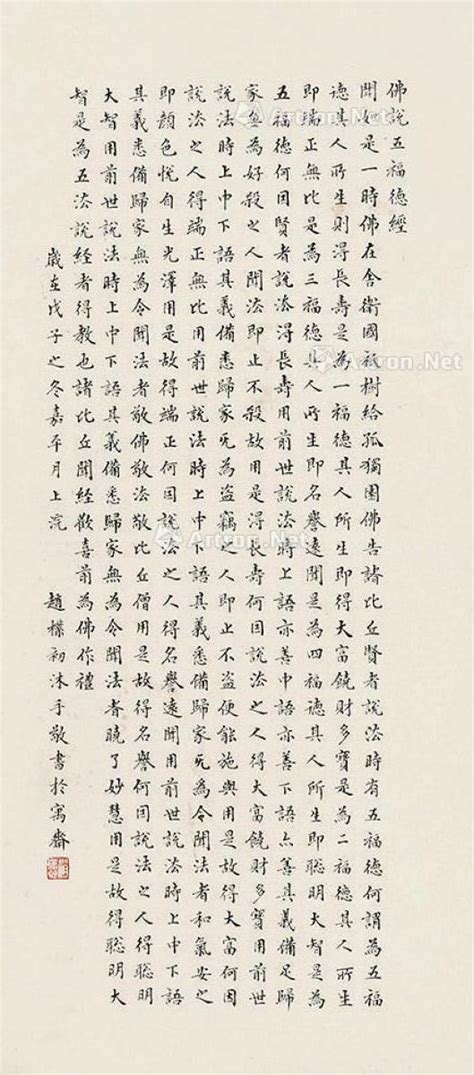 佛說五福德經
聞如是一時佛在舍衛國祇樹給孤獨園佛告諸比丘賢者說法時有五福德何謂為五福
德其人所生則得長壽是為一福德其人所生即得大富饒財多寶是為二福德其人所生
即端正無比是為三福德其人所生即名譽遠聞是為四福德其人所生即聰明大智是為
五福德何因賢者說法得長壽用前世說法時上語亦善中語亦善下語亦善其義備足歸
家無為好殺之人聞法即止不殺故用是得長壽何因說法之人得大富饒財多寶用前世
說法時上中下語其義備悉歸家无為盜竊之人即止不盜便能施與用是故得大富何因
說法之人得端正無比用前世說法時上中下語其義悉備歸家无為令聞法者和氣安之
即顏色悅自生光澤用是故得端正何因說法之人得名譽遠聞用前世說法時上中下語
其義悉備歸家無為令聞法者敬佛敬法敬比丘僧用是故得名譽何因說法之人得聰明
大智用前世說法時上中下語其義備悉歸家無為令聞法者曉了妙慧用是故得聰明大
智是為五法說經者得教也諸比丘聞經歡喜前為佛作禮
歲在戊子之冬嘉平月上浣 趙樸初沐手敬書於寓齋
Artron.Net
Artron.Net
Artron.Net